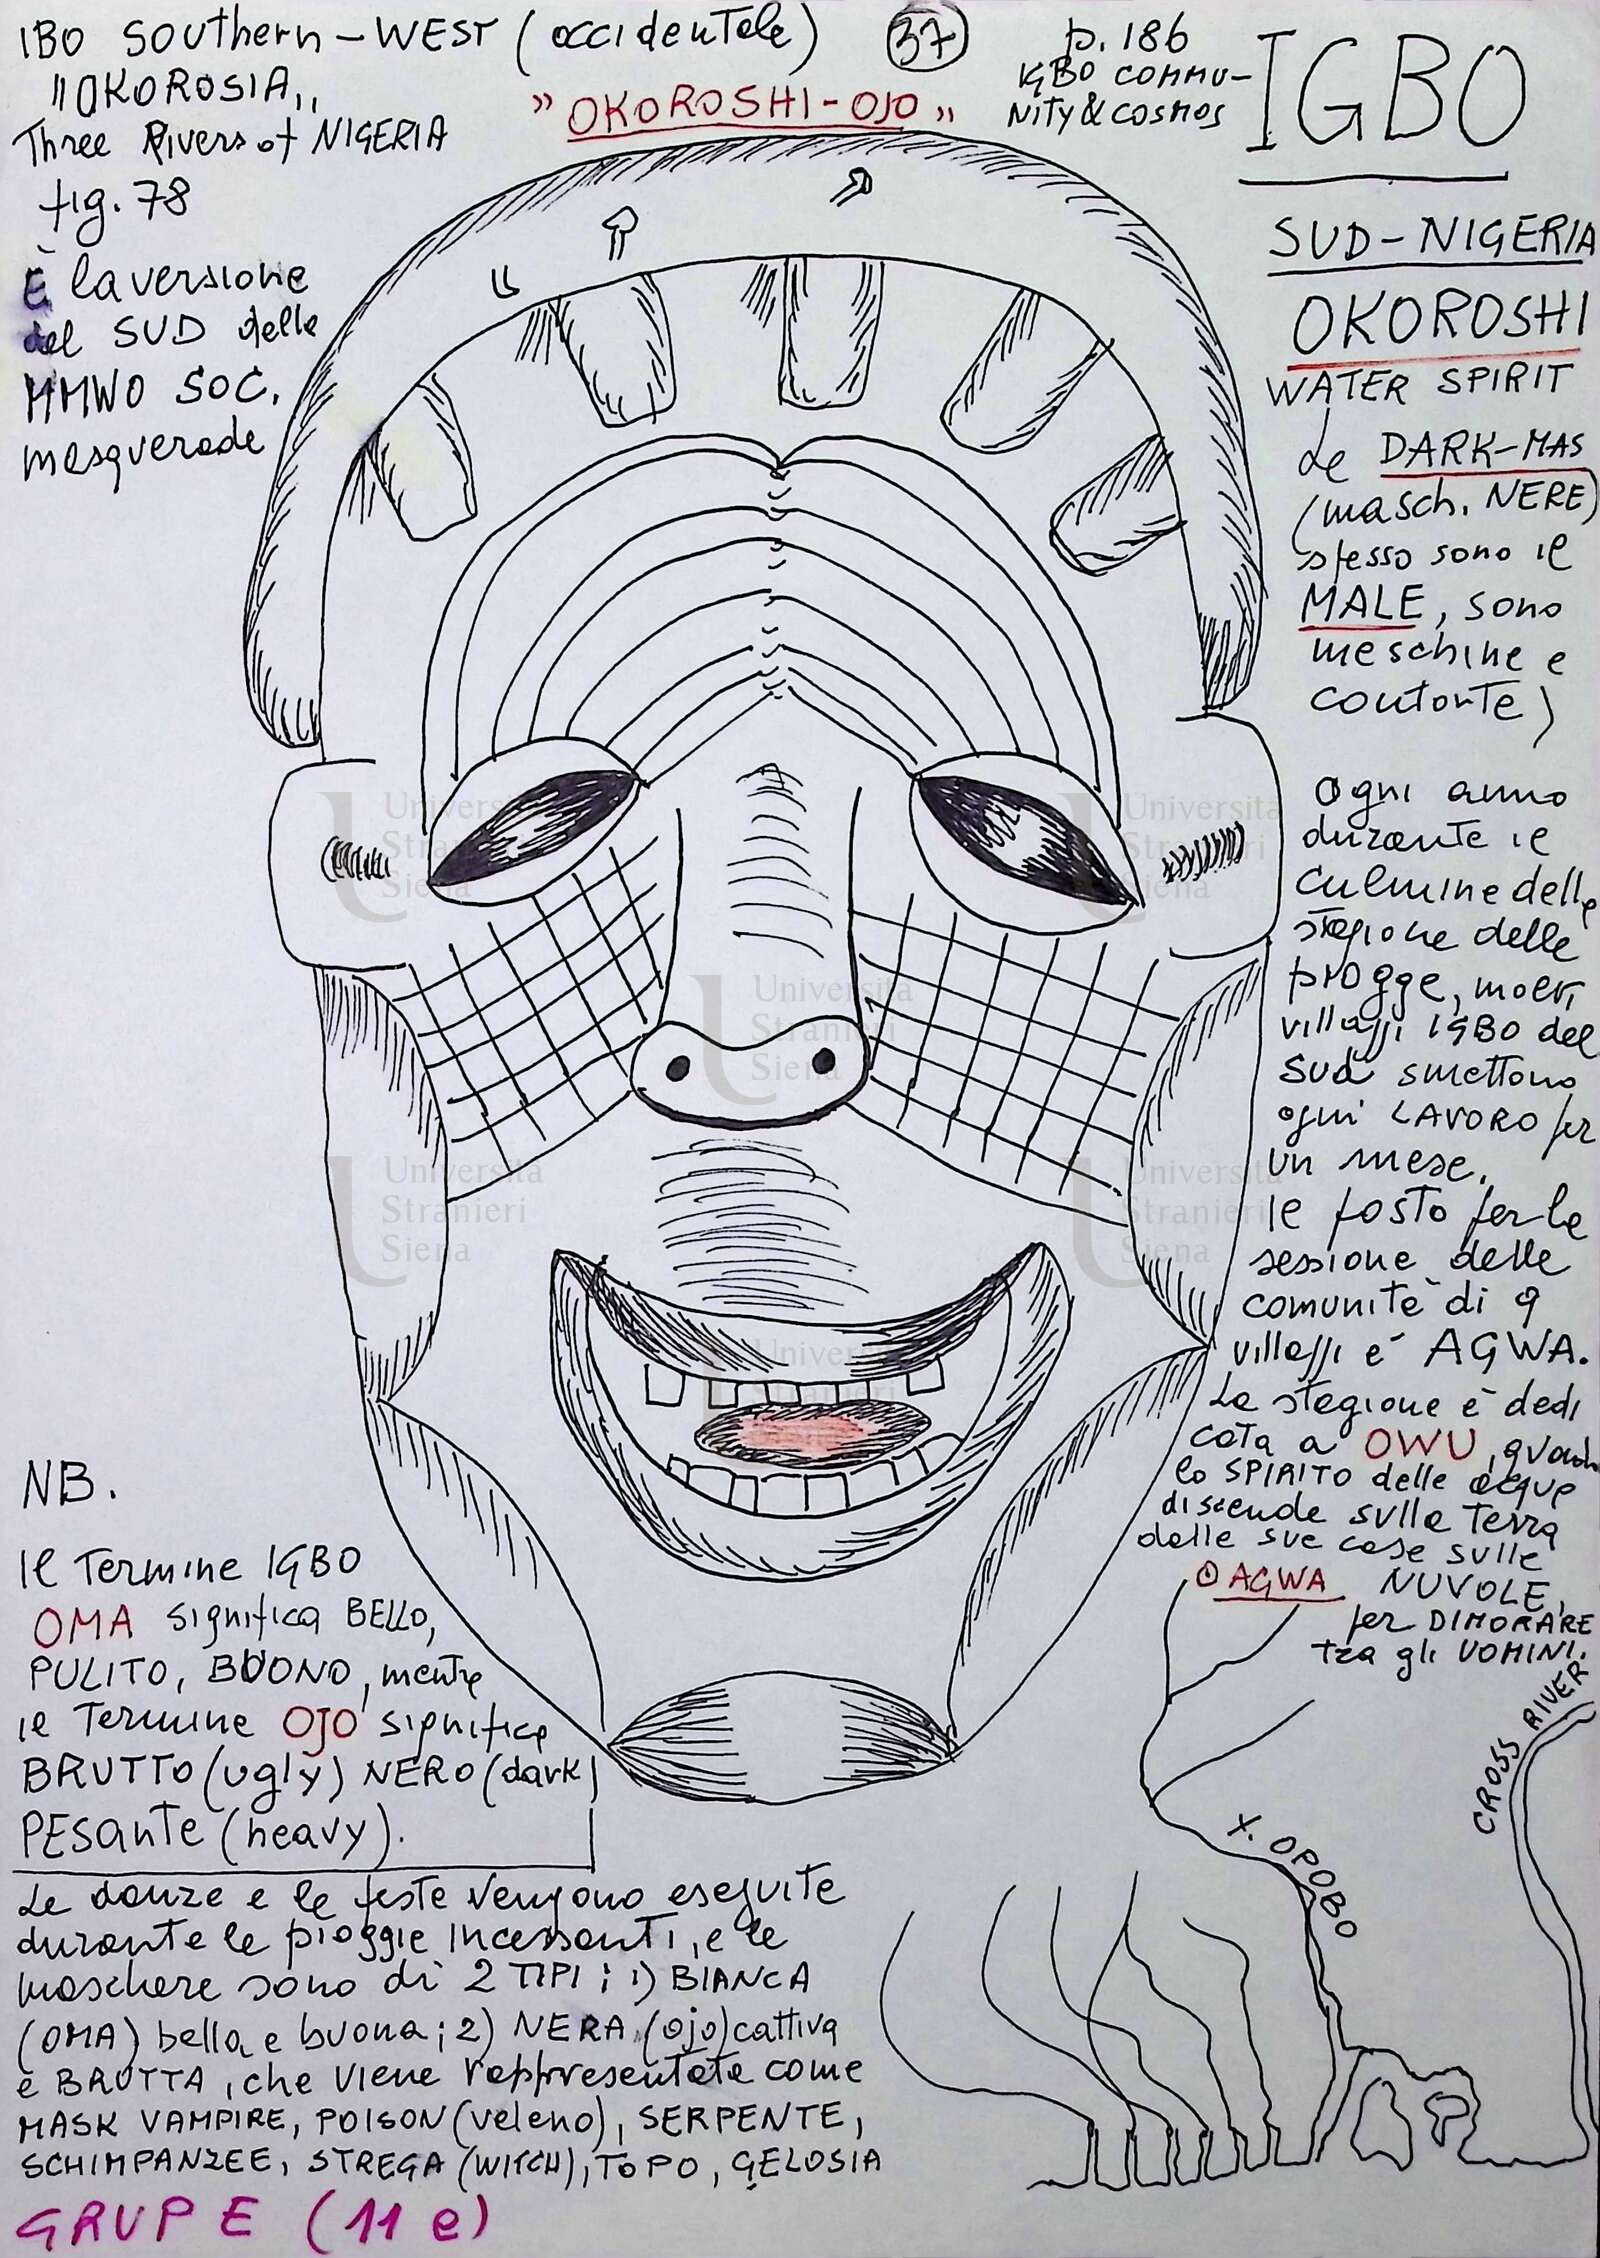 IBO SOUTHERN-WEST (occidentale)
"OKOROSIA"
Three Rivers of NIGERIA
fig. 78
È la versione
del SUD delle
MMWO SOC.
mesquerade
37
"OKOROSHI-OJO"
p. 186
IGBO COMMU-
NITY & COSMOS
IGBO
SUD-NIGERIA
OKOROSHI
WATER SPIRIT
Le DARK-MAS
(masch. NERE)
spesso sono il
MALE, sono
meschine e
contorte)
Ogni anno
durante il
culmine della
stagione delle
piogge, molti
villaggi IGBO del
Sud smettono
ogni LAVORO per
un mese.
Il posto per la
sessione delle
comunità di 9
villaggi è AGWA.
La stagione è dedi
cata a OWU, quando
lo SPIRITO delle acque
discende sulla Terra
dalle sue case sulle
NUVOLE,
per DIMORARE
tra gli UOMINI.
AGWA
CROSS RIVER
X. OPOBO
NB.
Il Termine IGBO
OMA significa BELLO,
PULITO, BUONO, mentre
il Termine OJO significa
BRUTTO (ugly) NERO (dark)
PESANTE (heavy).
Le danze e le feste vengono eseguite
durante le pioggie incessanti, e le
maschere sono di 2 TIPI: 1) BIANCA
(OMA) bella e buona; 2) NERA (ojo) cattiva
e BRUTTA, che viene rappresentata come
MASK VAMPIRE, POISON (veleno), SERPENTE,
SCHIMPANZEE, STREGA (WITCH), TOPO, GELOSIA
GRUPE (11 e)
Università
Stranieri
Siena
Università
Stranieri
Siena
Università
Stranieri
Siena
Università
Stranieri
Siena
Università
Stranieri
Siena
Università
Stranieri